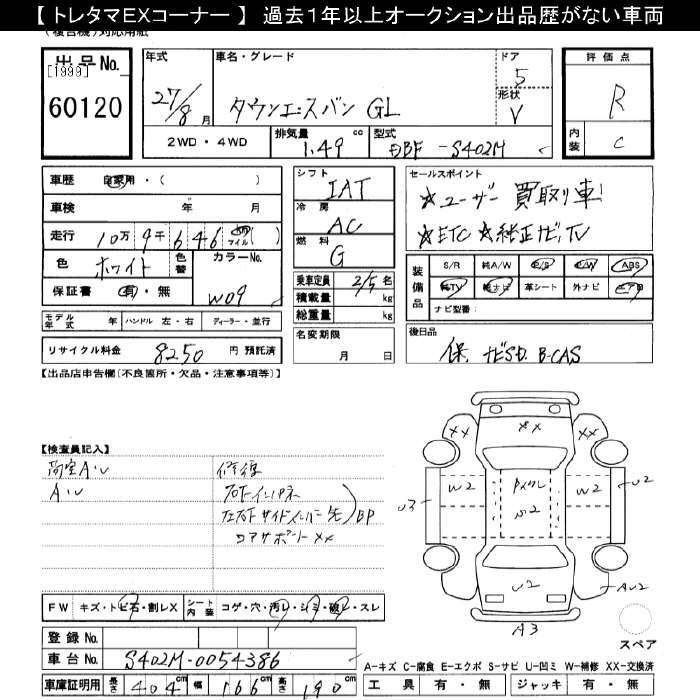 【 トレタマEXコーナー 】 過去1年以上オークション出品歴がない車両
(複合機)対応用紙
出品No.
[1999]
60120
年式
27/8月
車名・グレード
タウンエースバン GL
ドア
5
形状
V
評価点
R
内装
C
2WD・4WD
排気量
1.49 cc
型式
DBF -S402M
車歴 自家用・( )
車検 年 月
走行 10万 9千 6 4 6 km マイル( )
色 ホワイト 色替
カラーNo. W09
保証書 有・無
モデル年式 年 ハンドル 左・右 ディーラー・並行
リサイクル料金 8250 円 預託済
シフト
IAT
冷房
AC
燃料
G
乗車定員 2/5 名
積載量 kg
総重量 kg
名変期限
月 日
セールスポイント
☆ユーザー買取り車!
☆ETC ☆純正ナビ,TV
装備品
S/R 純A/W P/S P/W ABS
純TV 純ナビ 革シート 外ナビ エアB
ナビ型番:
後日品
保、ナビSD、B-CAS
【出品店申告欄(不良箇所・欠品・注意事項等)】
【検査員記入】
荷室A・U
A・U
修復
コアサポートXX
BP
XX
XX
XX
W2
W2
U2
U3
U2
AU2
A3
FW キズ・トビ石・割レX
シート内装 コゲ・穴・汚レ・シミ・破レ・スレ
登録No.
車台No. S402M-0054386
車庫証明用 長さ 404 cm 幅 166 cm 高さ 190 cm
スペア
A-キズ C-腐食 E-エクボ S-サビ U-凹ミ W-補修 XX-交換済
工具 有・無 ジャッキ 有・無